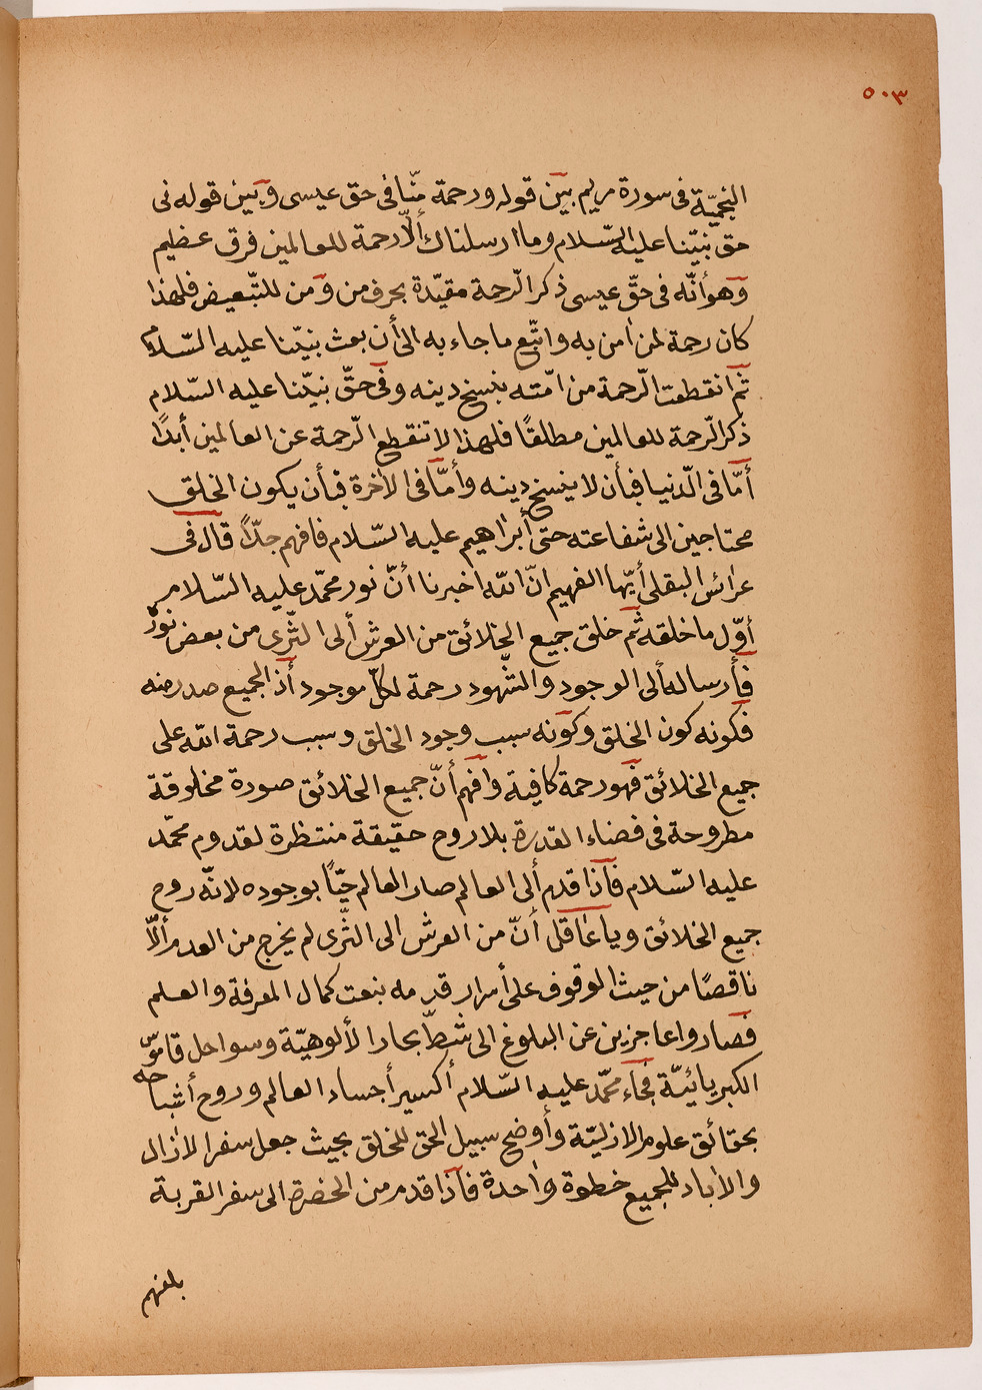 ٥٠٣
النجميّة فى سورة مريم بين قوله ورحمة منّا فى حق عيسى وبين قوله فى
حق نبيّنا عليه السّلام وما ارسلناك ألّا رحمة للعالمين فرق عظيم
وهو أنّه فى حقّ عيسى ذكر الرّحمة مقيّدة بحرف من ومن للتّبعيض فلهذا
كان رحمة لمن امن به واتّبع ما جاء به الى أن بعث نبيّنا عليه السّلام
ثم انقطعت الرّحمة من امّته بنسخ دينه وفى حقّ نبيّنا عليه السّلام
ذكر الرّحمة للعالمين مطلقًا فلهذا لا تنقطع الرّحمة عن العالمين أبدًا
أمّا فى الدّنيا فبأن لا ينسخ دينه وأمّا فى الاخرة فبأن يكون الخلق
محتاجين الى شفاعته حتى أبراهيم عليه السّلام فافهم جدّاً قال فى
عرائس البقلى أيّها الفهيم انّ الله اخبرنا أنّ نور محمّد عليه السّلام
أوّل ما خلقه ثم خلق جميع الخلائق من العرش ألى الثّرى من بعض نوره
فأرساله ألى الوجود والشّهود رحمة لكلّ موجود أذ الجميع صدر منه
فكونه كون الخلق وكونه سبب وجود الخلق وسبب رحمة الله على
جميع الخلائق فهو رحمة كافية وافهم أنّ جميع الخلائق صورة مخلوقة
مطروحة فى فضاء القدرة بلا روح حقيقة منتظرة لقدوم محمّد
عليه السّلام فأذا قدم ألى العالم صار العالم حيّاً بوجوده لانّه روح
جميع الخلائق ويا عاقل أنّ من العرش الى الثّرى لم يخرج من العدم ألّا
ناقصًا من حيث الوقوف على أسرار قدمه بنعت كمال المعرفة والعلم
فصاروا عاجزين عن البلوغ الى شطّ بحار الألوهيّة وسواحل قاموس
الكبريائيّة فجاء محمّد عليه السّلام أكسير أجساد العالم وروح أشباحه
بحقائق علوم الازليّة وأوضح سبيل الحق للخلق بحيث جعل سفر الازال
والاباد للجميع خطوة واحدة فأذا قدم من الحضرة الى سفر القربة
بلغهم